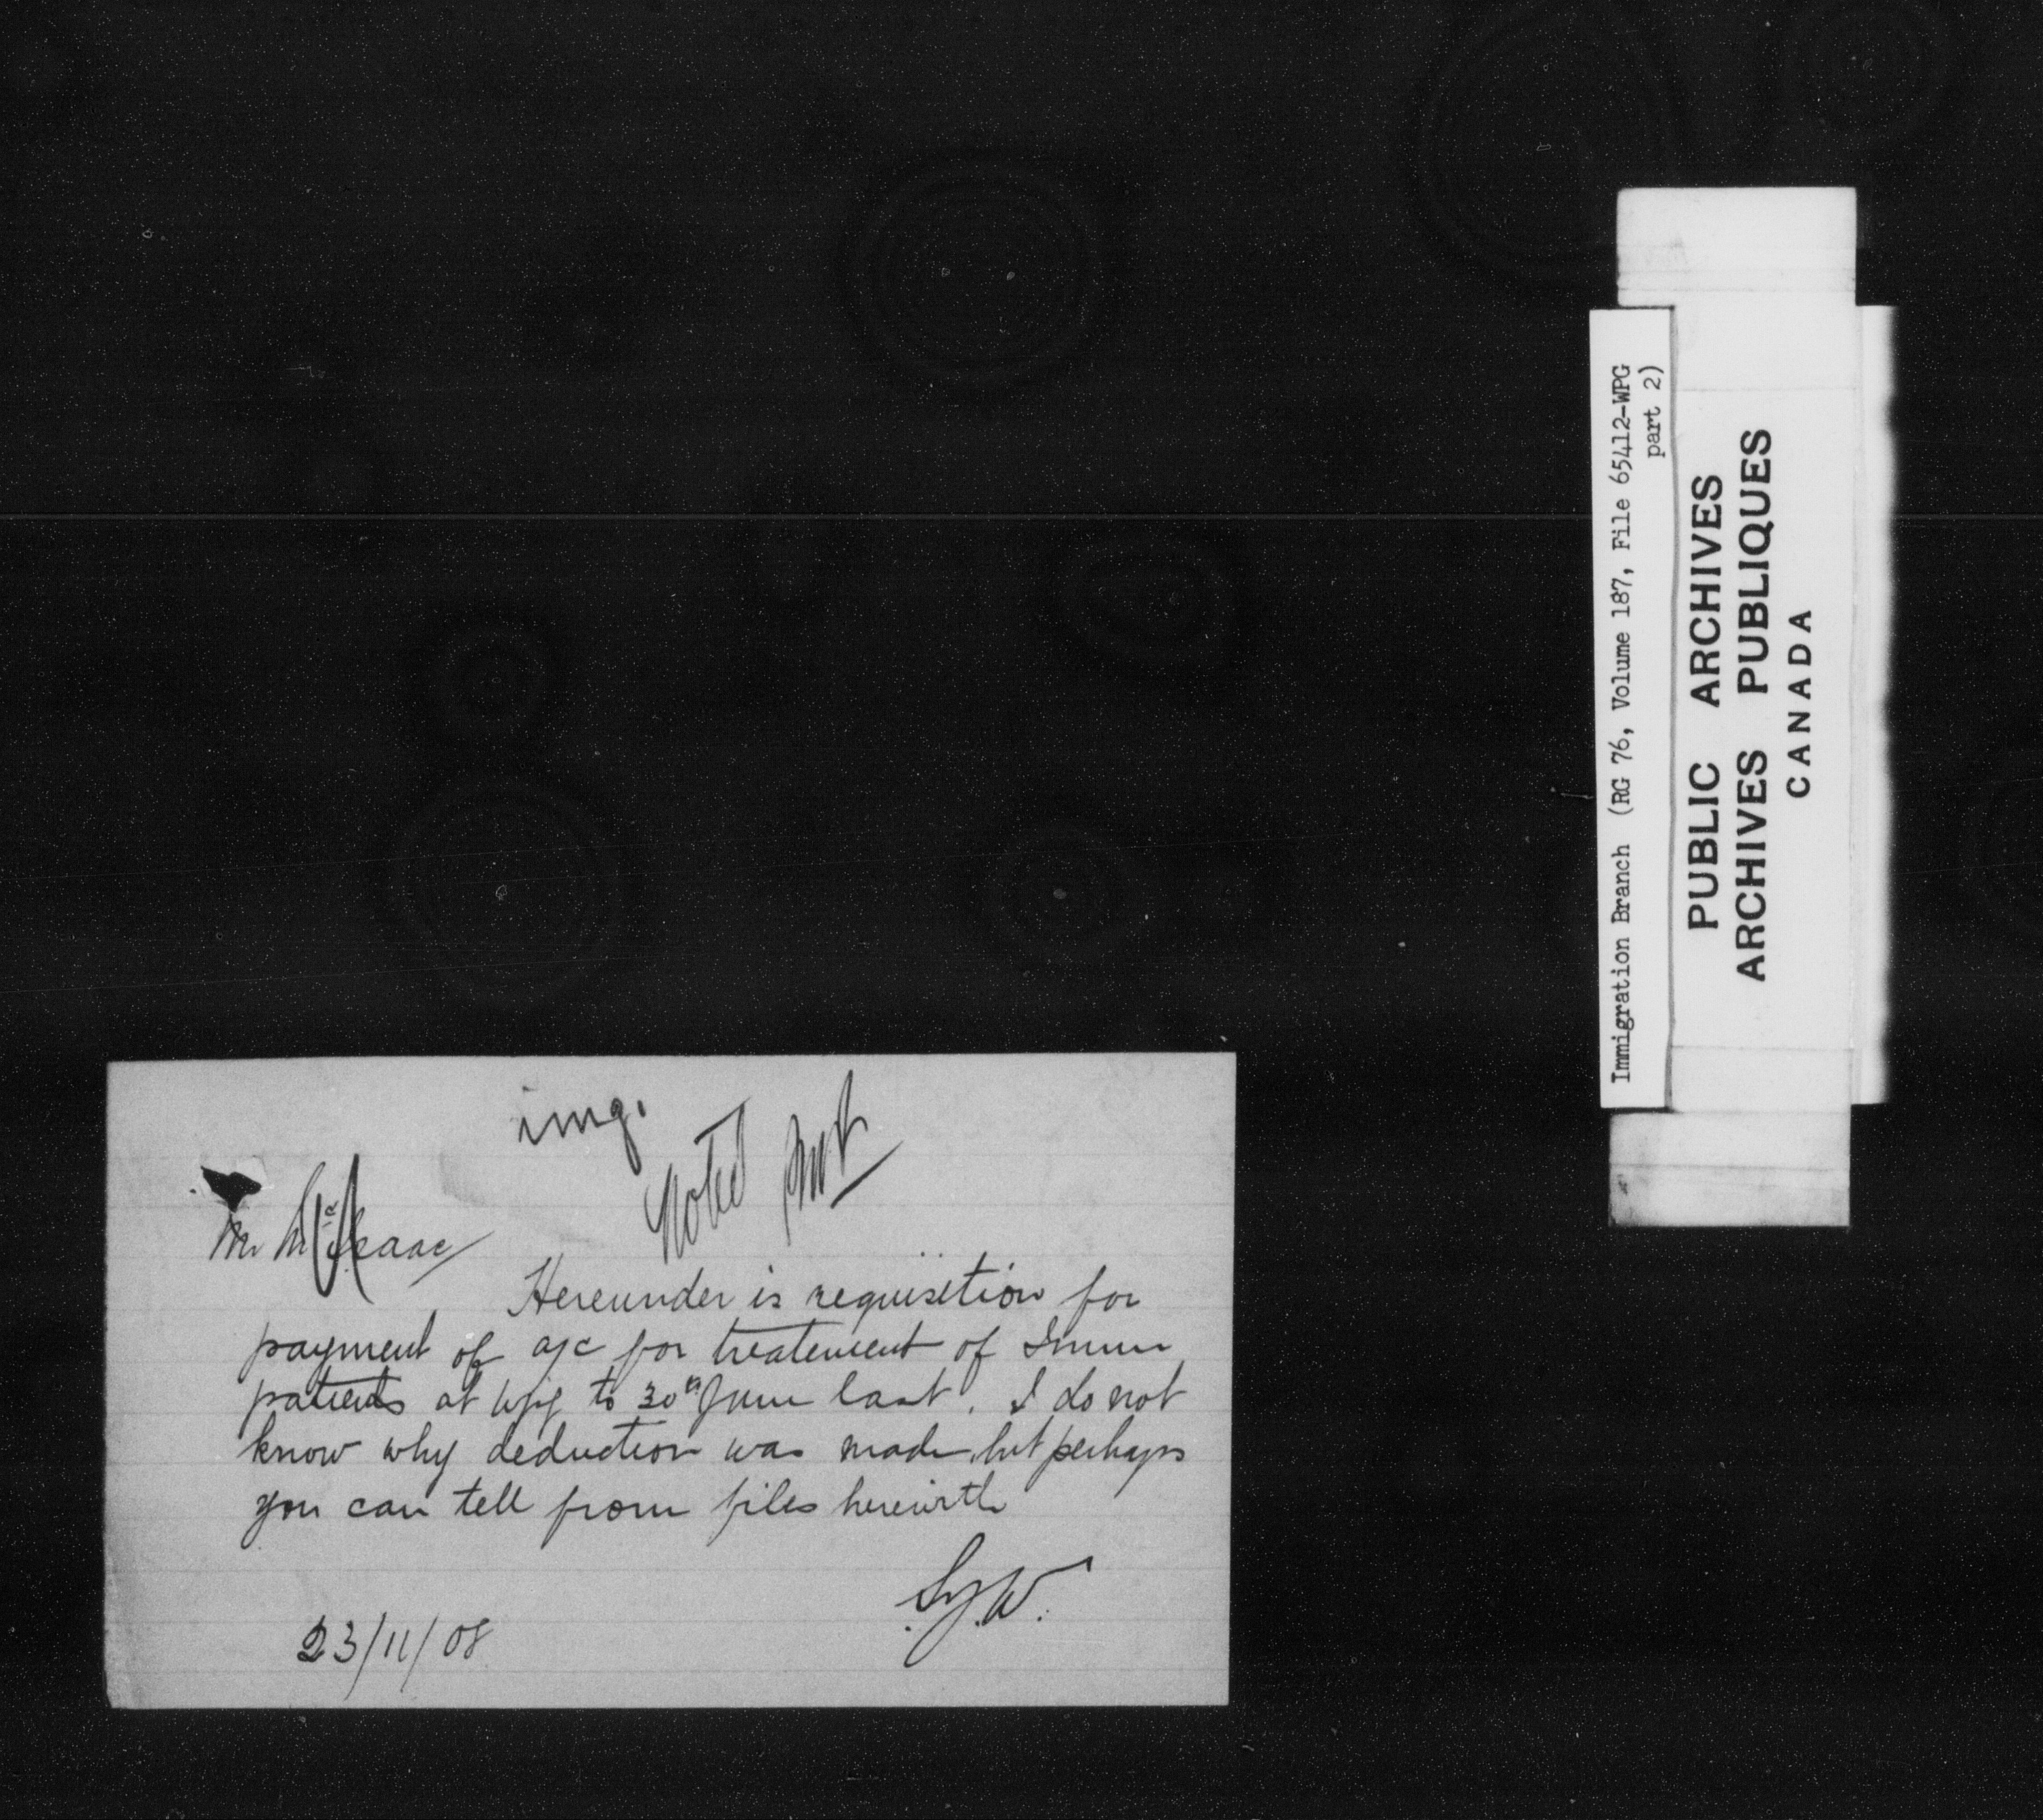 img.
Noted
Mr McIsaac
Hereunder is requisition for
payment of a/c for treatement of Immn
patients at Wpg to 30th June last. I do not
know why deduction was made, but perhaps
you can tell from files herewith
23/11/08
Immigration Branch (RG 76, Volume 187, File 65412-WPG
part 2)
PUBLIC ARCHIVES
ARCHIVES PUBLIQUES
CANADA